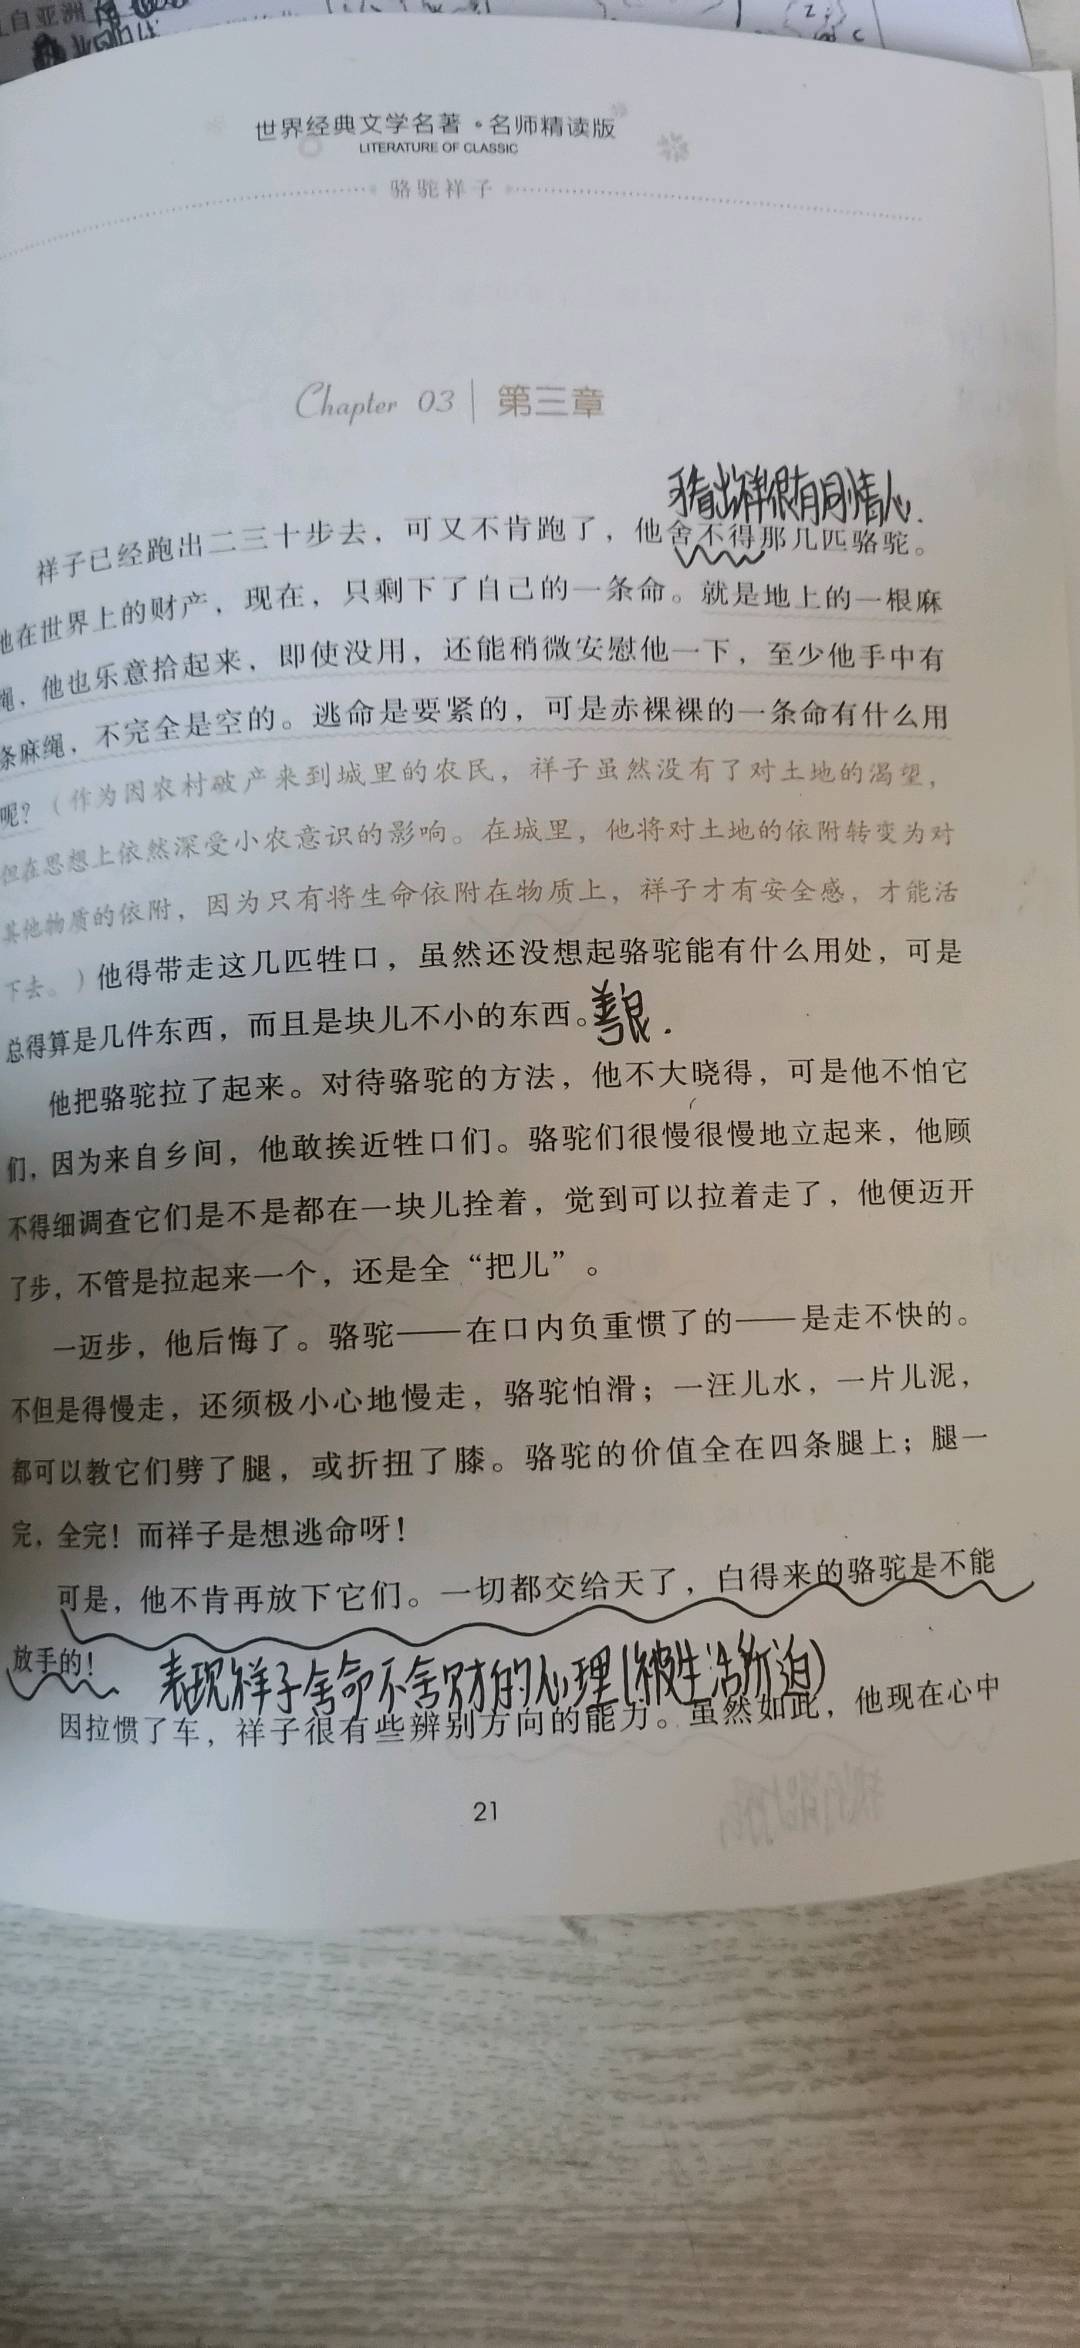 自亚洲
世界经典文学名著·名师精读版
LITERATURE OF CLASSIC
骆驼祥子
Chapter 03 | 第三章
可看出祥很有同情心.
祥子已经跑出二三十步去，可又不肯跑了，他舍不得那几匹骆驼。
他在世界上的财产，现在，只剩下了自己的一条命。就是地上的一根麻
绳，他也乐意拾起来，即使没用，还能稍微安慰他一下，至少他手中有
条麻绳，不完全是空的。逃命是要紧的，可是赤裸裸的一条命有什么用
呢？（作为因农村破产来到城里的农民，祥子虽然没有了对土地的渴望，
但在思想上依然深受小农意识的影响。在城里，他将对土地的依附转变为对
其他物质的依附，因为只有将生命依附在物质上，祥子才有安全感，才能活
下去。）他得带走这几匹牲口，虽然还没想起骆驼能有什么用处，可是
总得算是几件东西，而且是块儿不小的东西。善良.
他把骆驼拉了起来。对待骆驼的方法，他不大晓得，可是他不怕它
们，因为来自乡间，他敢挨近牲口们。骆驼们很慢很慢地立起来，他顾
不得细调查它们是不是都在一块儿拴着，觉到可以拉着走了，他便迈开
了步，不管是拉起来一个，还是全“把儿”。
一迈步，他后悔了。骆驼——在口内负重惯了的——是走不快的。
不但是得慢走，还须极小心地慢走，骆驼怕滑；一汪儿水，一片儿泥，
都可以教它们劈了腿，或折扭了膝。骆驼的价值全在四条腿上；腿一
完，全完！而祥子是想逃命呀！
可是，他不肯再放下它们。一切都交给天了，白得来的骆驼是不能
放手的！
表现祥子舍命不舍财的心理(被生活所迫)
因拉惯了车，祥子很有些辨别方向的能力。虽然如此，他现在心中
21